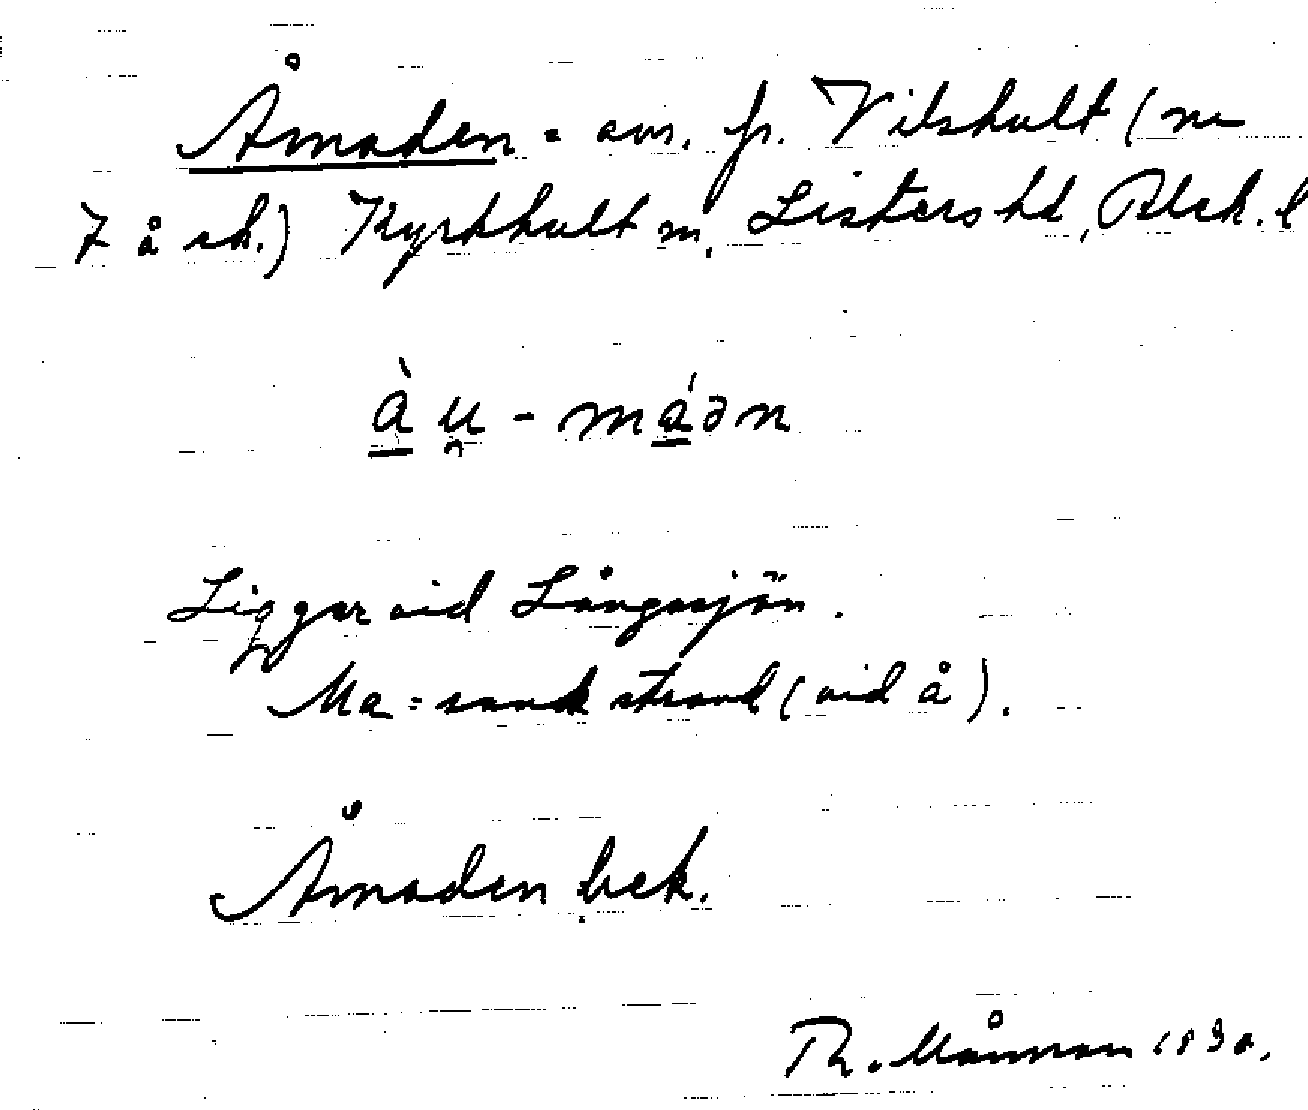 Åmaden = avs. fr. Vilshult (nr
7 å ek.) Kyrkhult sn, Listers hd, Blek. l
àu̯ - máən
Ligger vid Långasjön.
Ma = sank strand (vid å).
Åmaden bek.
Th. Månman 1930.